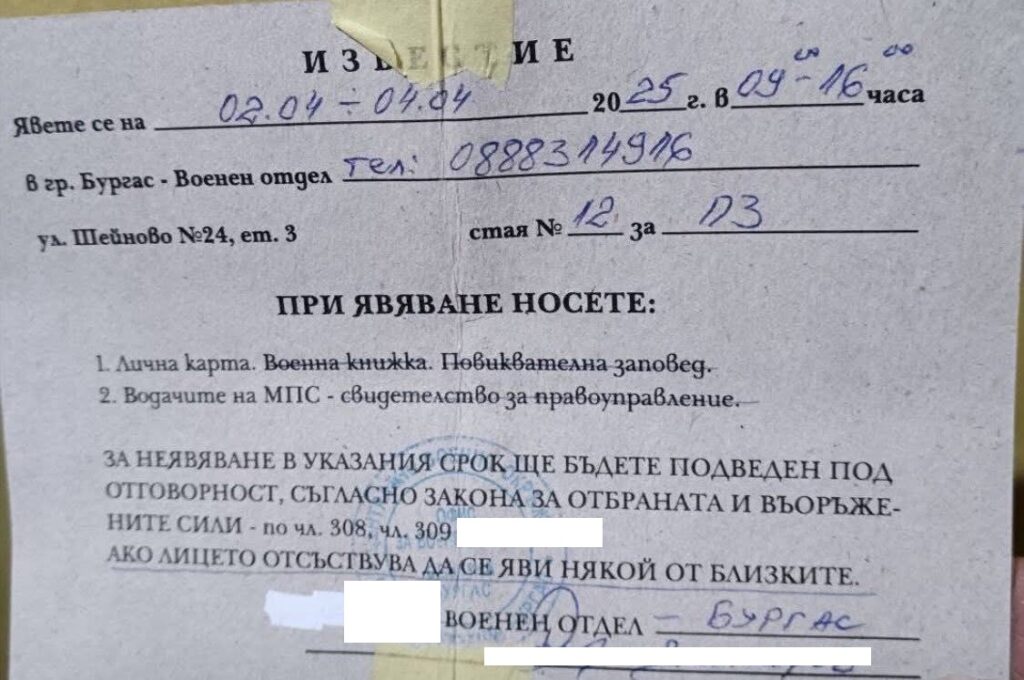 ИЗВЕСТИЕ
Явете се на 02.04 ÷ 04.04 2025 г. в 09⁰⁰ - 16⁰⁰ часа
в гр. Бургас - Военен отдел тел: 0888314916
ул. Шейново №24, ет. 3 стая № 12 за ПЗ
ПРИ ЯВЯВАНЕ НОСЕТЕ:
1. Лична карта. Военна книжка. Повиквателна заповед.
2. Водачите на МПС - свидетелство за правоуправление.
ЗА НЕЯВЯВАНЕ В УКАЗАНИЯ СРОК ЩЕ БЪДЕТЕ ПОДВЕДЕН ПОД
ОТГОВОРНОСТ, СЪГЛАСНО ЗАКОНА ЗА ОТБРАНАТА И ВЪОРЪЖЕ-
НИТЕ СИЛИ - по чл. 308, чл. 309
АКО ЛИЦЕТО ОТСЪСТВУВА ДА СЕ ЯВИ НЯКОЙ ОТ БЛИЗКИТЕ.
ВОЕНЕН ОТДЕЛ - БУРГАС